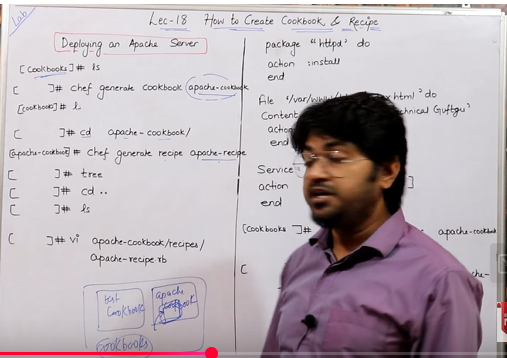 Lab
Lec-18 How to Create Cookbook & Recipe
Deploying an Apache Server
[Cookbooks]# ls
[ ]# chef generate cookbook apache-cookbook
[cookbook]# l
[ ]# cd apache-cookbook/
[apache-cookbook]# chef generate recipe apache-recipe
[ ]# tree
[ ]# cd ..
[ ]# ls
[ ]# vi apache-cookbook/recipes/
apache-recipe.rb
test
Cookbook
apache
cookbook
Cookbooks
package "httpd" do
action :install
end
File '/var/www/ html' do
Content Technical Guftgu'
action
end
Service
action ]
end
[cookbooks ]# apache-cookbook
[